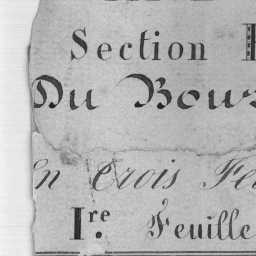 Section
Du Bour
En Trois Fe
Ire. Feuille